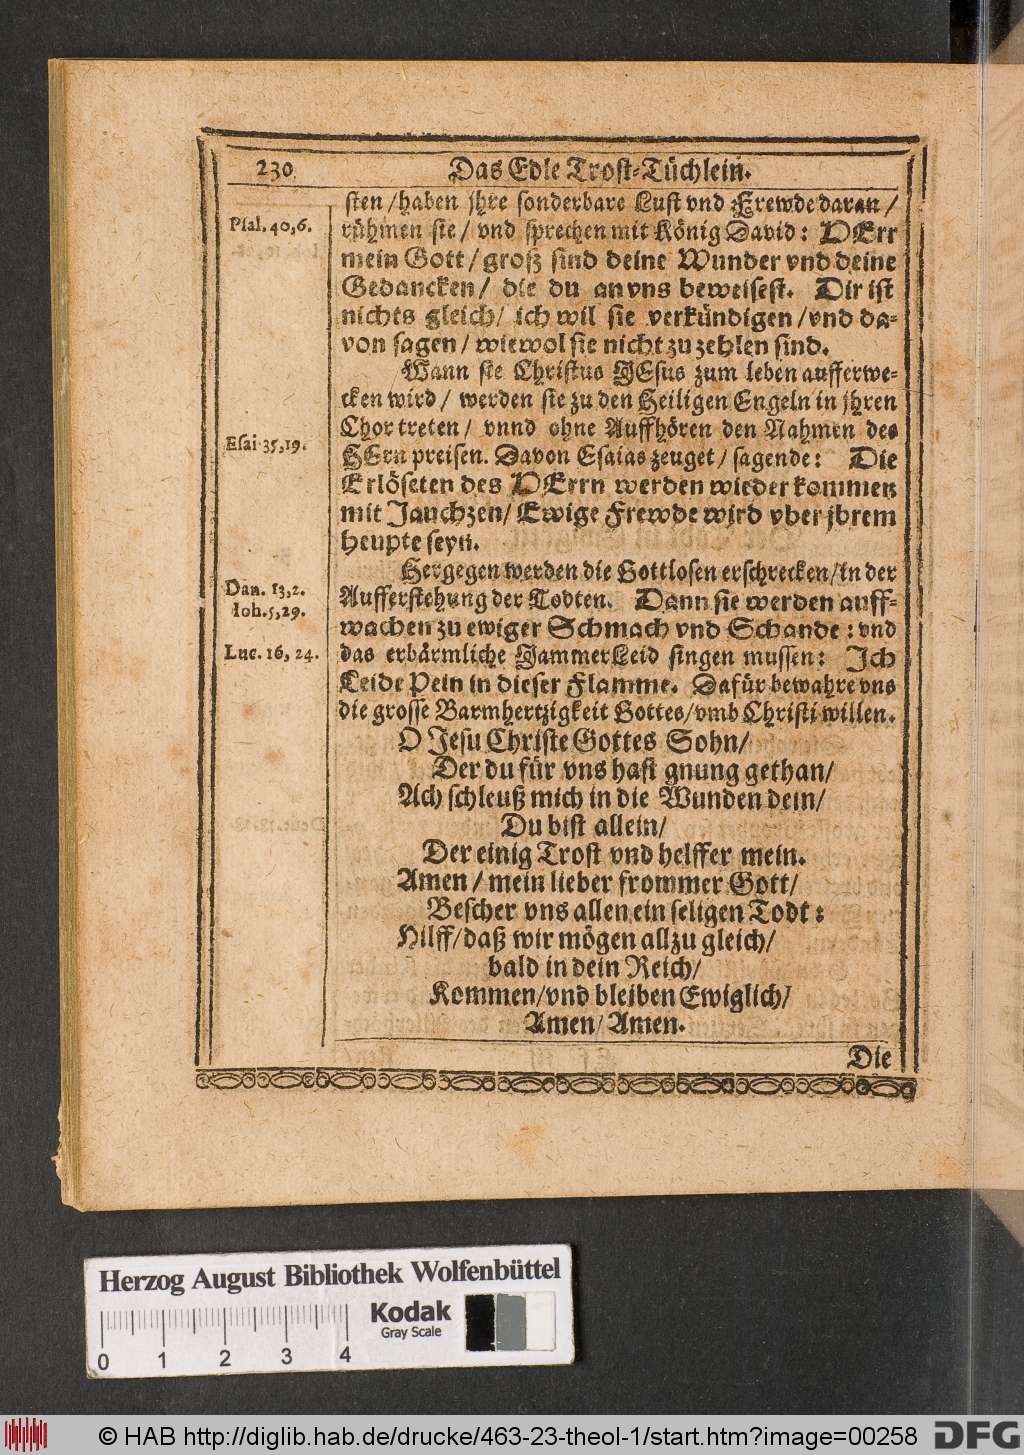 230 Das Edle Trost-Tüchlein.
sten/haben jhre sonderbare Lust vnd Frewde daran/
Psal. 40,6.
rühmen sie/ vnd sprechen mit König David: HErr
mein Gott/groß sind deine Wunder vnd deine
Gedancken/ die du an vns beweisest. Dir ist
nichts gleich/ ich wil sie verkündigen/vnd da-
von sagen/ wiewol sie nicht zu zehlen sind.
Wann sie Christus JEsus zum leben aufferwe-
cken wird/ werden sie zu den Heiligen Engeln in jhren
Chor treten/ vnnd ohne Auffhören den Nahmen des
Esai 35,19.
HErn preisen. Davon Esaias zeuget/ sagende: Die
Erlöseten des HErrn werden wieder kommen
mit Jauchzen/ Ewige Frewde wird vber jhrem
heupte seyn.
Hergegen werden die Gottlosen erschrecken/in der
Dan. 13,2.
Aufferstehung der Todten. Dann sie werden auff-
Ioh. 5,29.
wachen zu ewiger Schmach vnd Schande: vnd
Luc. 16, 24.
das erbärmliche JammerLeid singen mussen: Ich
Leide Pein in dieser Flamme. Dafür bewahre vns
die grosse Barmhertzigkeit Gottes/vmb Christi willen.
O Jesu Christe Gottes Sohn/
Der du für vns hast gnung gethan/
Ach schleuß mich in die Wunden dein/
Du bist allein/
Der einig Trost vnd helffer mein.
Amen/ mein lieber frommer Gott/
Bescher vns allen ein seligen Todt:
Hilff/daß wir mögen allzu gleich/
bald in dein Reich/
Kommen/vnd bleiben Ewiglich/
Amen/ Amen.
Die
Herzog August Bibliothek Wolfenbüttel
Kodak
Gray Scale
0 1 2 3 4
© HAB http://diglib.hab.de/drucke/463-23-theol-1/start.htm?image=00258
DFG